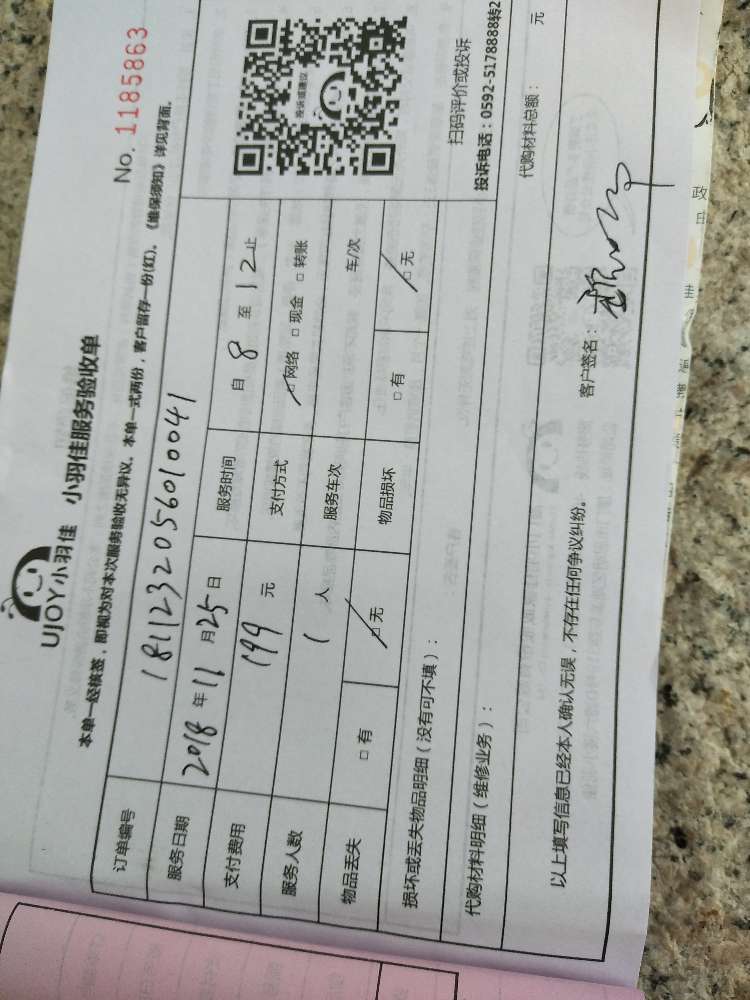 UJOY小羽佳 小羽佳服务验收单
No. 1185863
本单一经核签，即视为对本次服务验收无异议。本单一式两份，客户留存一份(红)。《维保须知》详见背面。
订单编号 181123205601004​1
服务日期 2018 年 11 月 25 日 服务时间 自 8 至 12 止
支付费用 199 元 支付方式 □ 网络 □ 现金 □ 转账
服务人数 1 人 服务车次 车/次
物品丢失 □ 有 □ 无 物品损坏 □ 有 □ 无
投诉或建议
扫码评价或投诉
投诉电话：0592-5178888转2
损坏或丢失物品明细（没有可不填）：
代购材料明细（维修业务）： 代购材料总额： 元
以上填写信息已经本人确认无误，不存在任何争议纠纷。 客户签名：